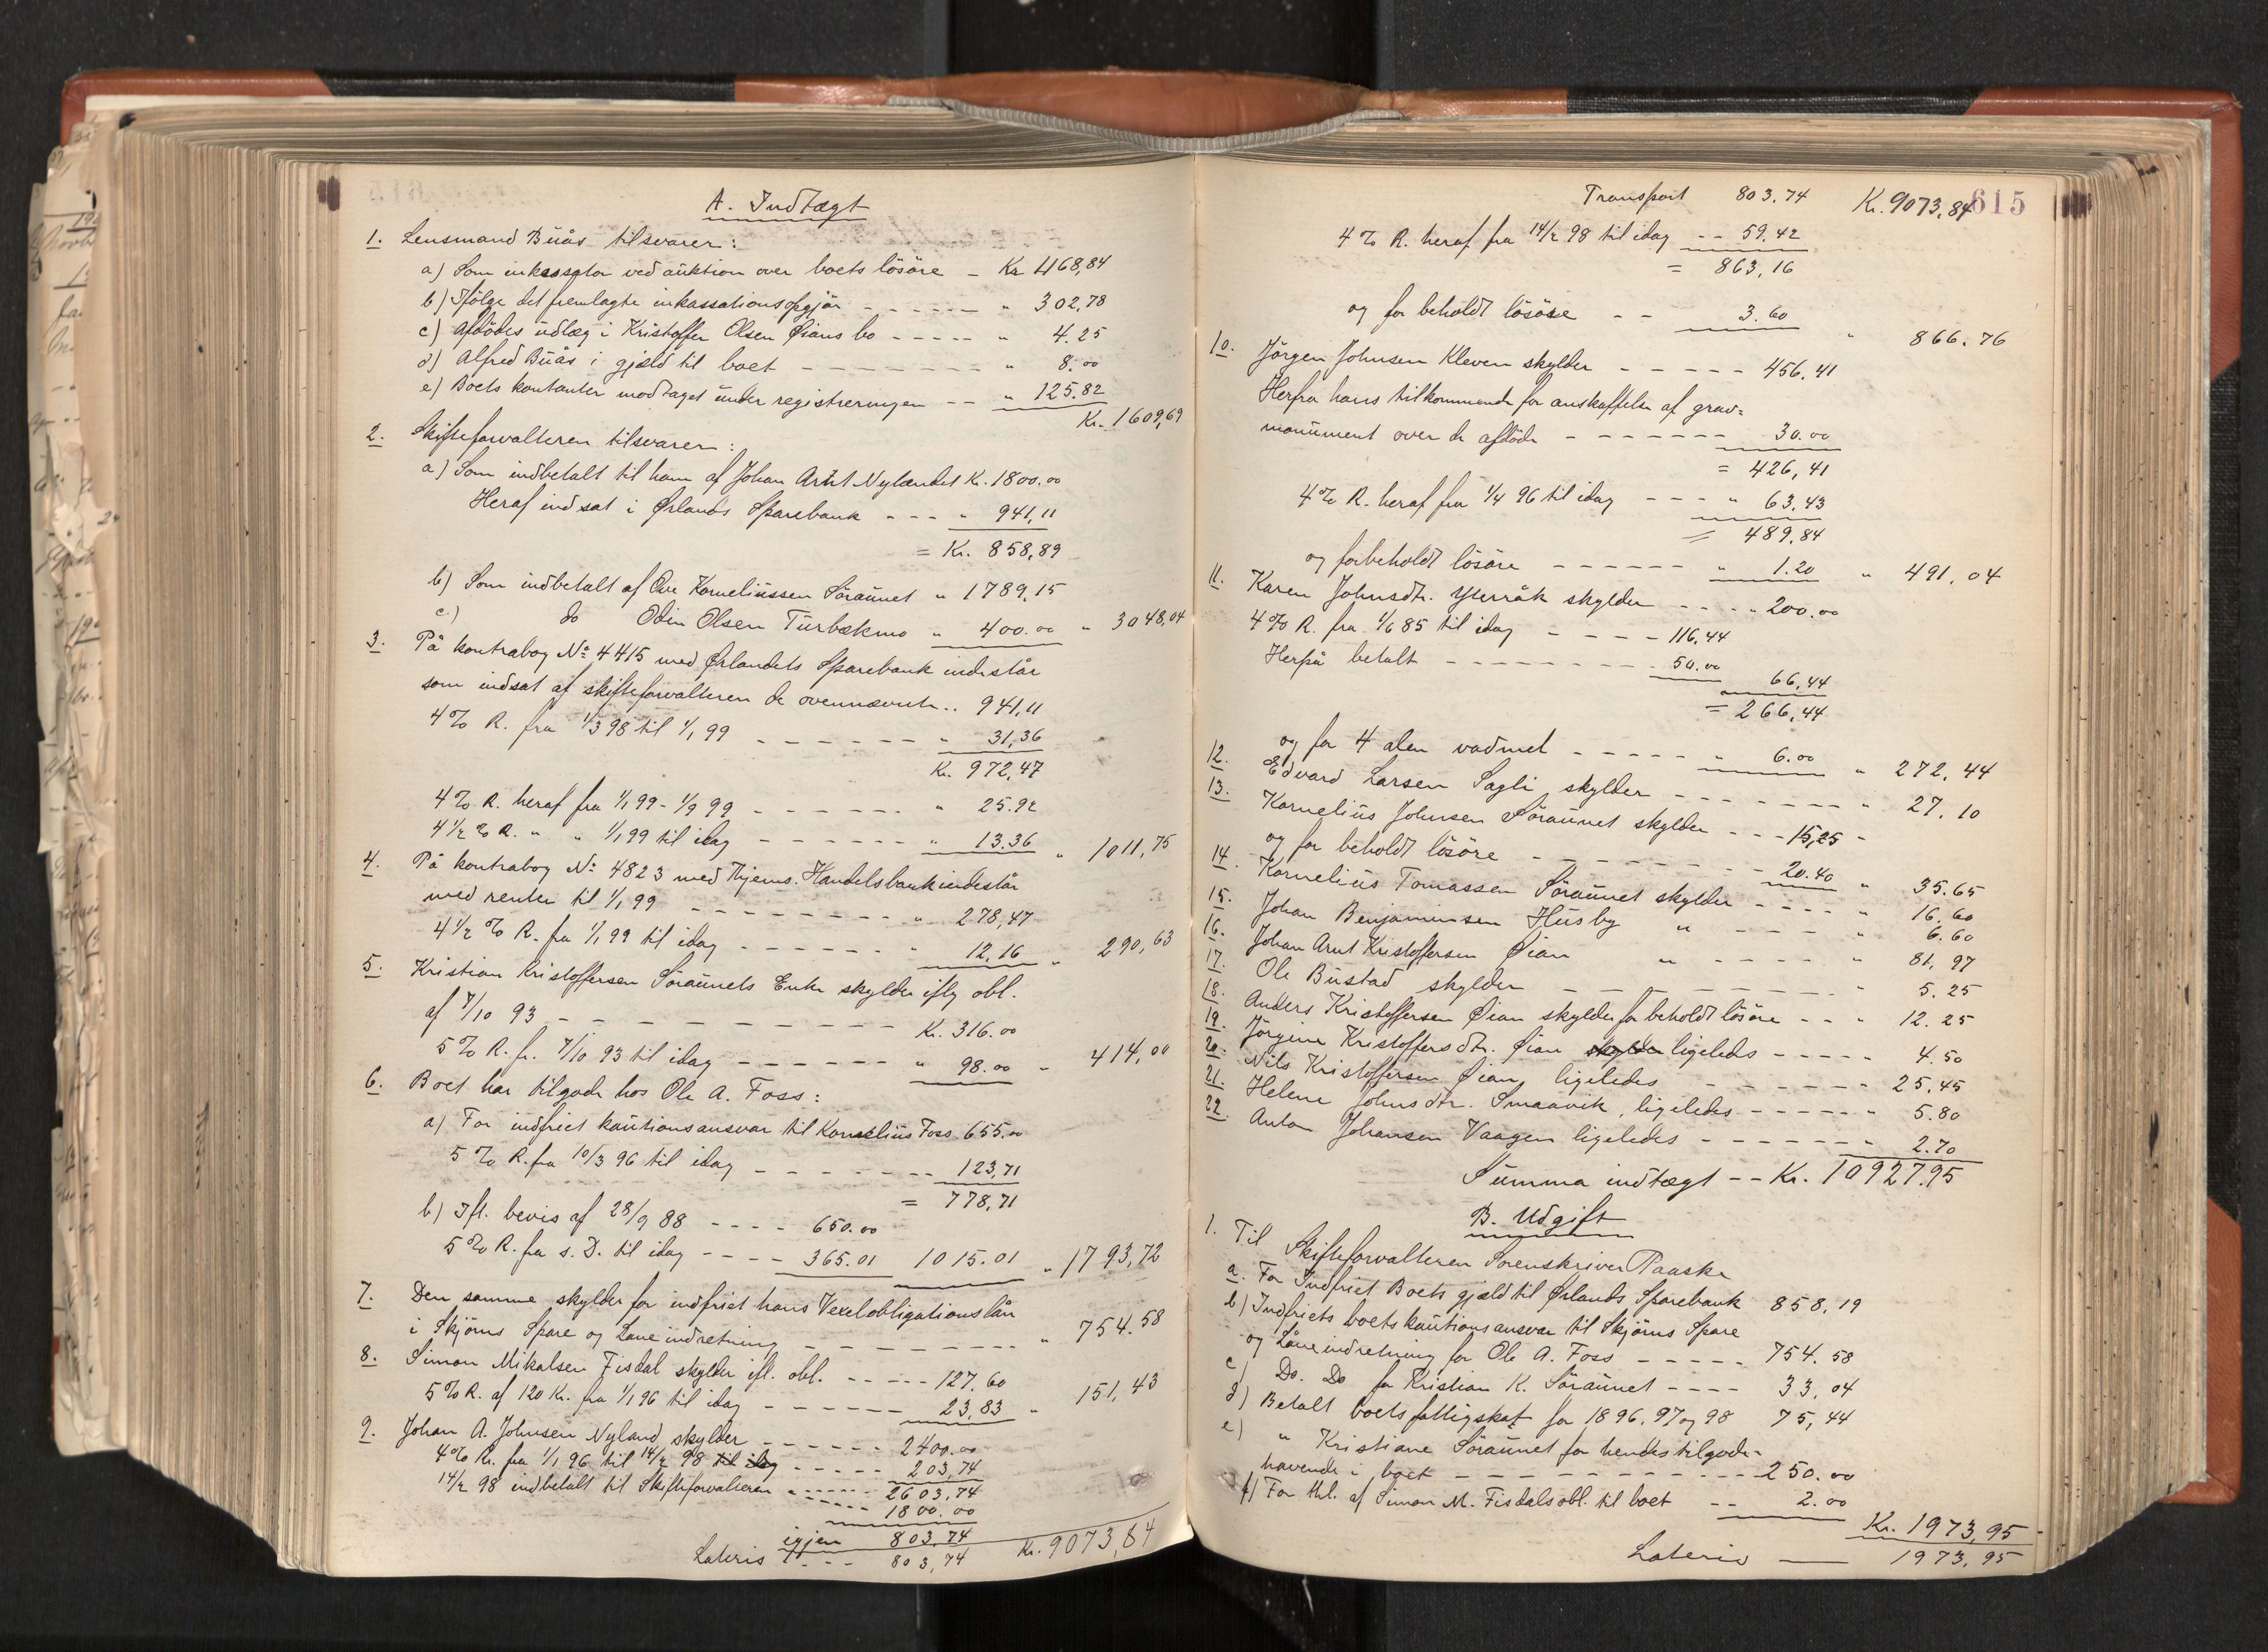 A. Indtægt
1. Lensmand Buås tilsvarer:
a) Som inkassator ved auktion over boets lösöre - Kr 1168,84
b) Ifölge det fremlagte inkassationsopgjör - - - - - - " 302,78
c) Afdödes udlæg i Kristoffer Olsen Øians bo - - - - - " 4.25
d) Alfred Buås i gjæld til boet - - - - - - - - " 8.00
e) Boets kontanter modtaget under registreringen - - " 125.82
Kr. 1609,69
2. Skifteforvalteren tilsvarer:
a) Som indbetalt til ham af Johan Arnt Nylandet Kr. 1800.00
Heraf indsat i Ørlands Sparebank - - - " 941,11
= Kr. 858,89
b) Som indbetalt af Ove Korneliussen Söraunet " 1789,15
c) do Odin Olsen Turbækmo " 400.00 " 3048,04
3. På kontrabog No 4415 med Ørlandets Sparebank indestår
som indsat af skifteforvalteren de ovennævnte .. 941,11
4 % R. fra 1/3 98 til 1/1 99 - - - - - - - " 31,36
Kr. 972,47
4 % R. heraf fra 1/1 99 - 1/9 99 - - - - - - " 25.92
4 1/2 % R. " " 1/1 99 til idag - - - - - - - " 13.36 " 1011,75
4. På kontrabog No 4823 med Thjems. Handelsbank indestår
med renter til 1/1 99 - - - - - - - - - " 278,47
4 1/2 % R. fra 1/1 99 til idag - - - - - - - " 12.16 " 290,63
5. Kristian Kristoffersen Söraunets Enke skylder iflg obl.
af 7/10 93 - - - - - - - - - - - Kr. 316.00
5 % R. fr. 7/10 93 til idag - - - - - - - " 98.00 " 414,00
6. Boet har tilgode hos Ole A. Foss:
a) For indfriet kautionsansvar til Kornelius Foss 655.00
5 % R. fra 10/3 96 til idag - - - - - - - - 123,71
= 778,71
b) Ifl. bevis af 28/9 88 - - - - 650.00
5 % R. fra s. D. til idag - - - - 365.01 1015.01 " 1793,72
7. Den samme skylder for indfriet hans Vexelobligationslån
i Skjörns Spare og Laneindretning - - - - - - - - " 754.58
8. Simon Mikalsen Fisdal skylder ifl. obl. - - - - - 127.60
5 % R. af 120 Kr. fra 1/1 96 til idag - - - - - - 23,83 " 151,43
9. Johan A. Johnsen Nyland skylder - - - - - - 2400.00
4 % R. fra 1/1 96 til 14/2 98 til idag - - - - - 203,74
2603,74
14/2 98 indbetalt til Skifteforvalteren - - - - - - 1800.00
igjen 803.74
Lateris - - - 803,74 Kr. 9073,84
615
Transport 803.74 Kr. 9073,84
4 % R. heraf fra 14/2 98 til idag - - 59.42
= 863,16
og for beholdt lösöre - - 3.60 " 866.76
10. Jörgen Johnsen Kleven skylder - - - - - 456.41
Herfra hans tilkommende for anskaffelse af grav=
monument over de afdöde - - - - - - - 30.00
= 426,41
4 % R. heraf fra 1/4 96 til idag - - - " 63,43
= 489.84
og forbeholdt lösöre - - - - - - " 1.20 " 491.04
11. Karen Johnsdtr. Yterråk skylder - - - - 200.00
4 % R. fra 1/6 85 til idag - - - - 116,44
Herpå betalt - - - - - - - - - 50.00
66,44
= 266,44
og for 4 alen vadmel - - - - - " 6.00 " 272,44
12. Edvard Larsen Sagli skylder - - - - - - - " 27.10
13. Kornelius Johnsen Söraunet skylder - - - 15,25 -
og for beholdt lösöre - - - - - - - - 20.40 " 35.65
14. Kornelius Tomassen Söraunet skylder - - - - " 16.60
15. Johan Benjaminsen Husby " - - - - " 6.60
16. Johan Arnt Kristoffersen Øian " - - - - " 81,97
17. Ole Bustad skylder - - - - - - - - " 5.25
18. Anders Kristoffersen Øian skylder for beholdt lösöre - - " 12.25
19. Jörgine Kristoffersdtr. Øian skylder ligeledes - - - - - 4.50
20. Nils Kristoffersen Øian, ligeledes - - - - - - " 25.45
21. Helene Johnsdtr. Smaavik, ligeledes - - - - - - " 5.80
22. Anton Johansen Vaagen ligeledes - - - - - - - " 2.70
Summa indtægt - - Kr. 10927.95
B. Udgift
1. Til Skifteforvalteren Sorenskriver Paaske
a. For Indfriet Boets gjæld til Ørlands Sparebank 858,19
b) Indfriets boets kautionsansvar til Skjörns Spare
og Låneindretning for Ole A. Foss - - - - - 754.58
c) Do. Do for Kristian K. Söraunet - - - - 33,04
d) Betalt boets fattigskat for 1896, 97 og 98 75,44
e) " Kristiane Söraunet for hendes tilgode-
havende i boet - - - - - - - - - - 250.00
f) For thl. af Simon M. Fisdals obl. til boet - - 2.00
Kr. 1973,95
Lateris — 1973,95